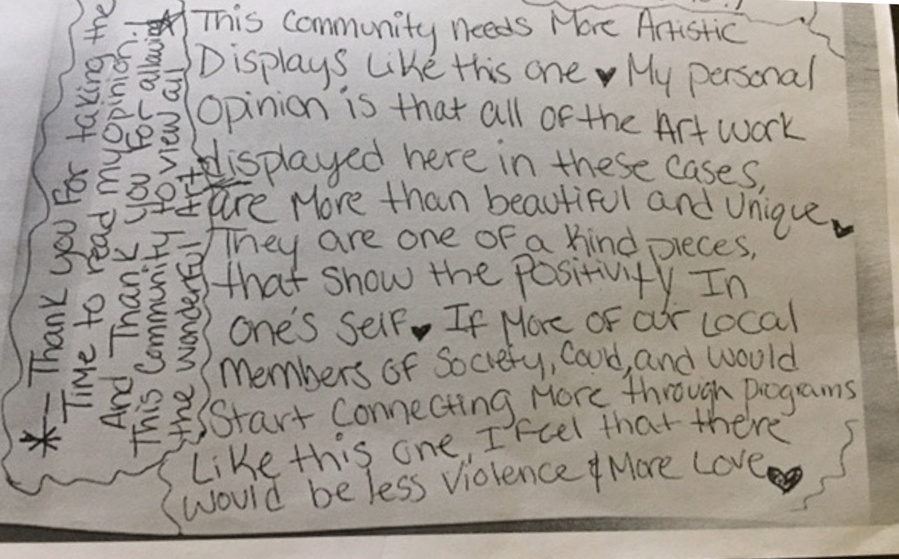 This Community needs More Artistic
Displays Like this one ♥ My personal
Opinion is that all of the Art work
displayed here in these cases,
are More than beautiful and Unique♥
They are one of a Kind pieces,
that show the positivity In
one's self♥ If More of our Local
Members of Society, Could, and would
Start Connecting More through programs
Like this one, I feel that there
would be less Violence & More Love♥
*— Thank you For taking the
Time to read my opinion!
And Thank you For allowing
This Community to view all
the wonderful Art